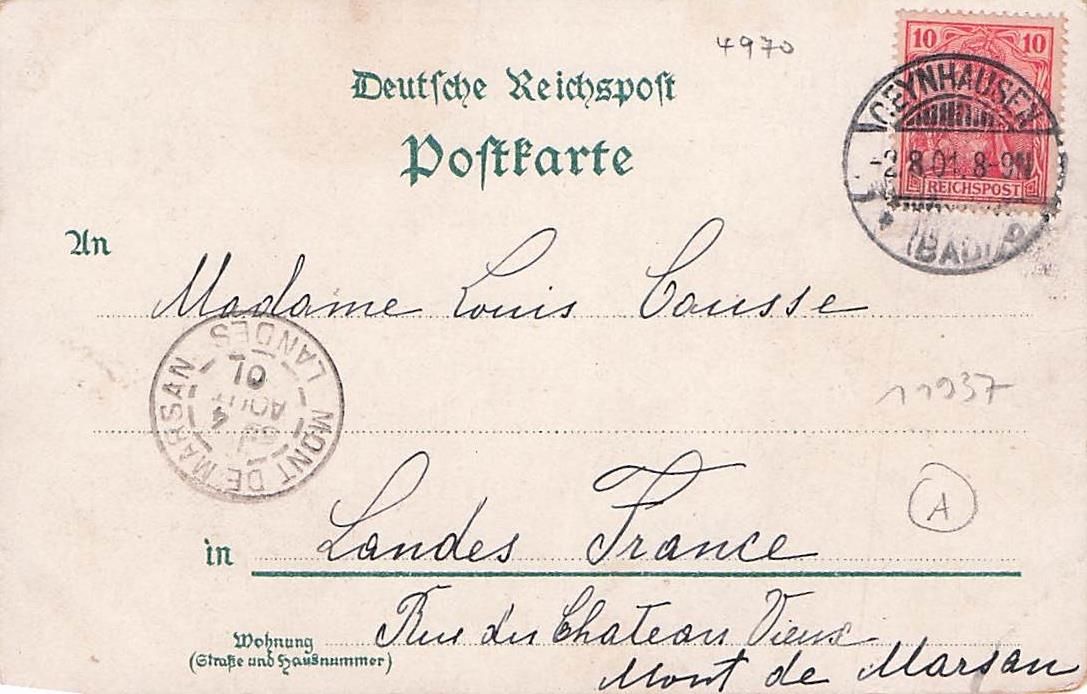 4970
10 10
Deutsche Reichspost
Postkarte
OEYNHAUSEN
-2.8.01. 8-9N
REICHSPOST
(BAD)
An
Madame Louis Causse
MONT DE MARSAN LANDES
4
AOUT
01
11937
A
in Landes France
Rue du Chateau Vieux
Wohnung
(Straße und Hausnummer)
Mont de Marsan